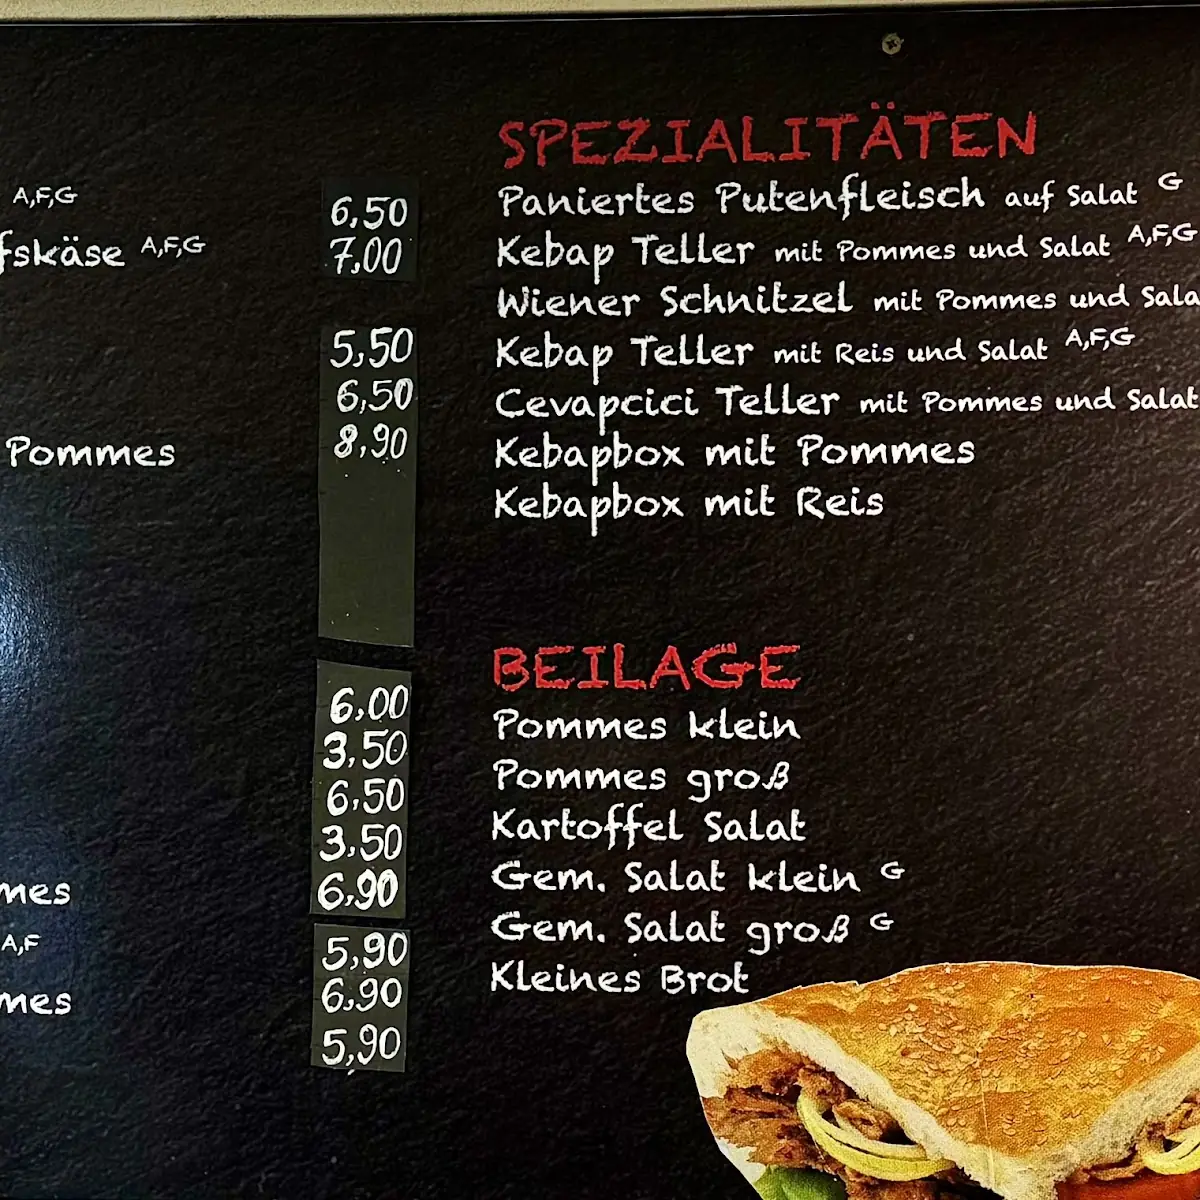 A,F,G 6,50
fskäse A,F,G 7,00
5,50
6,50
Pommes 8,90
6,00
3,50
6,50
3,50
mes 6,90
A,F 5,90
mes 6,90
5,90
SPEZIALITÄTEN
Paniertes Putenfleisch auf Salat G
Kebap Teller mit Pommes und Salat A,F,G
Wiener Schnitzel mit Pommes und Sala
Kebap Teller mit Reis und Salat A,F,G
Cevapcici Teller mit Pommes und Salat
Kebapbox mit Pommes
Kebapbox mit Reis
BEILAGE
Pommes klein
Pommes groß
Kartoffel Salat
Gem. Salat klein G
Gem. Salat groß G
Kleines Brot